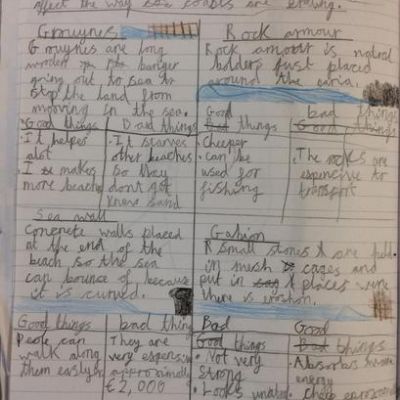 affect the way our coasts are eroding.
Groynes
Groynes are long
wooden banger
going out to sea to
stop the land from
mooving in the sea.
Good things
Bad things
. It helps
alot
. I makes
more beache
. It starves
other beaches
so they
dont get
knew sand
Rock armour
Rock armour is natral
bolders just placed
around the caria.
Good things
bad things
Cheeper
. can be
used for
fishing
. The rocks are
expencive to
transport
Sea wall
Concrete walls placed
at the end of the
beach so the sea
can bounce of becaus
it is curved.
Good things
bad thing
Peole can
walk along
them easlyer
They are
very expensive
approximatly
€2,000
Gabion
R small stones are held
in mesh cages and
put in places were
there is erosion.
Bad
Good things
. Not very
strong
. Looks unatral
Good
Bad things
. Absorbs
energy
. cheap